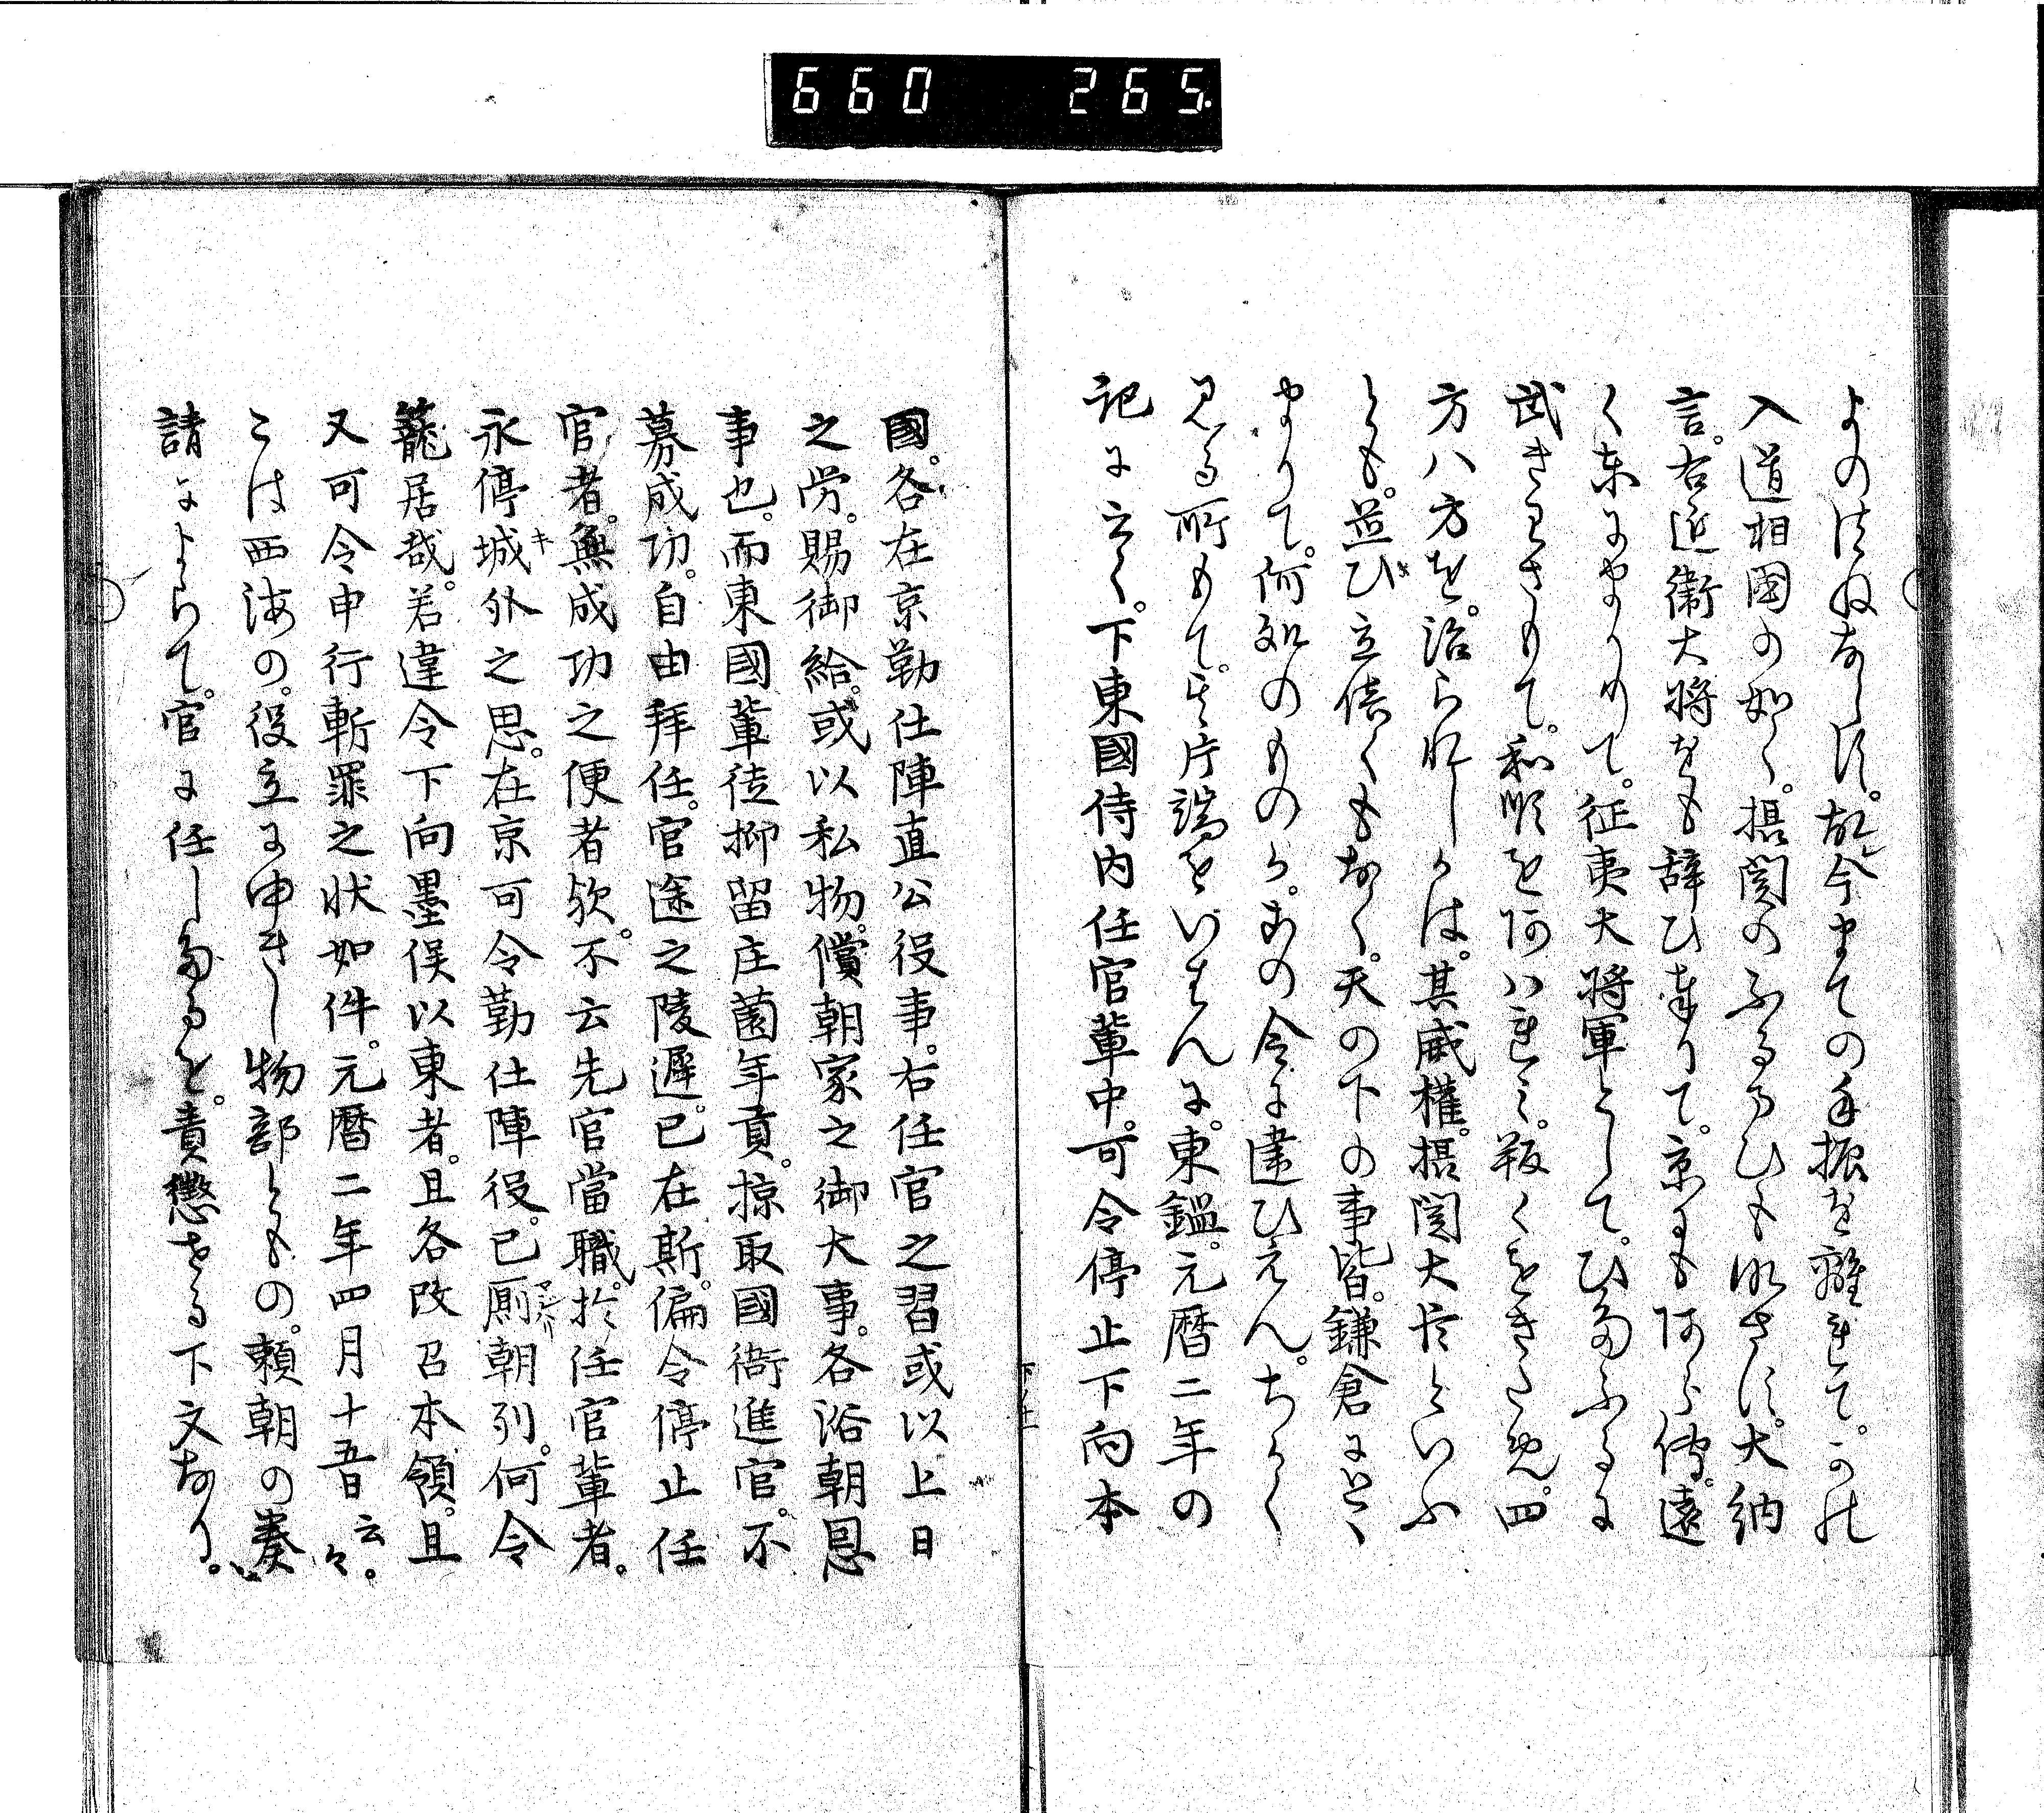 660 265.
よのはねあしに。故レ今までの手振を離れて。かの
入道相国の如く。摂関のふるまひも比さに。大納
言。右近衛大将をも辞ひ奉りて。京にも阿らで。遠
く東にやりて。征夷大将軍として。ひたふるに
武きわざもて。和順を阿ハれミ。叛くをきため。四
方八方を。治られしかは。其威権。摂関大臣といふ
とも。並び立倍くもあらく。天の下の事皆。鎌倉にとゝ
まりて。何処のものか。その令に違ひえん。ちかく
見る所もて。其片端をいはんに。東鑑。元暦二年の
記に云く。下東國侍内任官輩中。可令停止下向本
國。各在京勤仕陣直公役事。右任官之習或以上日
之労。賜御給。或以私物。償朝家之御大事。各浴朝恩
事也。而東國輩徒抑留庄薗年貢。掠取國衙進官。不
募成功。自由拜任。官途之陵遲。已在斯。偏令停止任
官者。無成功之便者欤。不云先官當職。於任官輩者。
永停城外之思。在京可令勤仕陣役。已厠朝列。何令
籠居哉。若違令下向墨俣以東者。且各改召本領。且
又可令申行斬罪之状如件。元暦二年四月十五日云々。
こは西海の。役立に申きし物部ともの。頼朝の奏
請によらて。官に任したるを。責懲せる下文あり。